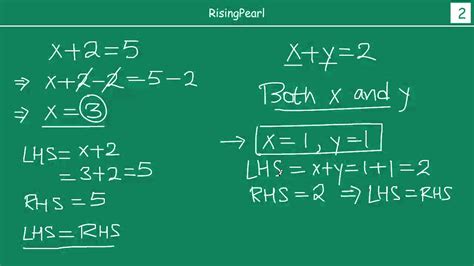 RisingPearl
2
x+2=5
⇒ x+2-2=5-2
⇒ x=3
LHS=x+2
=3+2=5
RHS=5
LHS=RHS
x+y=2
Both x and y
→ x=1, y=1
LHS=x+y=1+1=2
RHS=2 ⇒ LHS=RHS